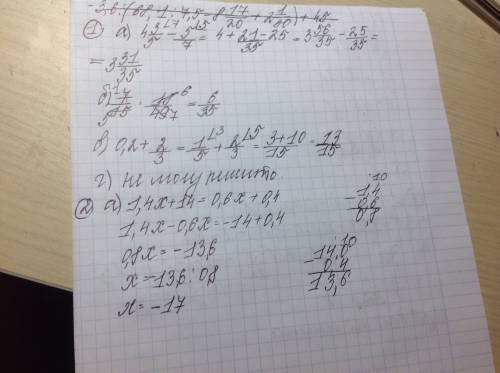 -3,6·(60,1:7,5-8 17/20+2 1/30)+45
① а) 4 3/5 - 5/7 = 4 + 21-25/35 = 3 56/35 - 25/35 =
= 3 31/35
б) 7/15 · 18/49 = 6/35
в) 0,2 + 2/3 = 1/5 + 2/3 = 3+10/15 = 13/15
г) не могу решить.
② а) 1,4x+14=0,6x+0,4
1,4x-0,6x=-14+0,4
0,8x=-13,6
x=-13,6:0,8
x=-17
1,4
- 0,6
0,8
14,0
- 0,4
13,6